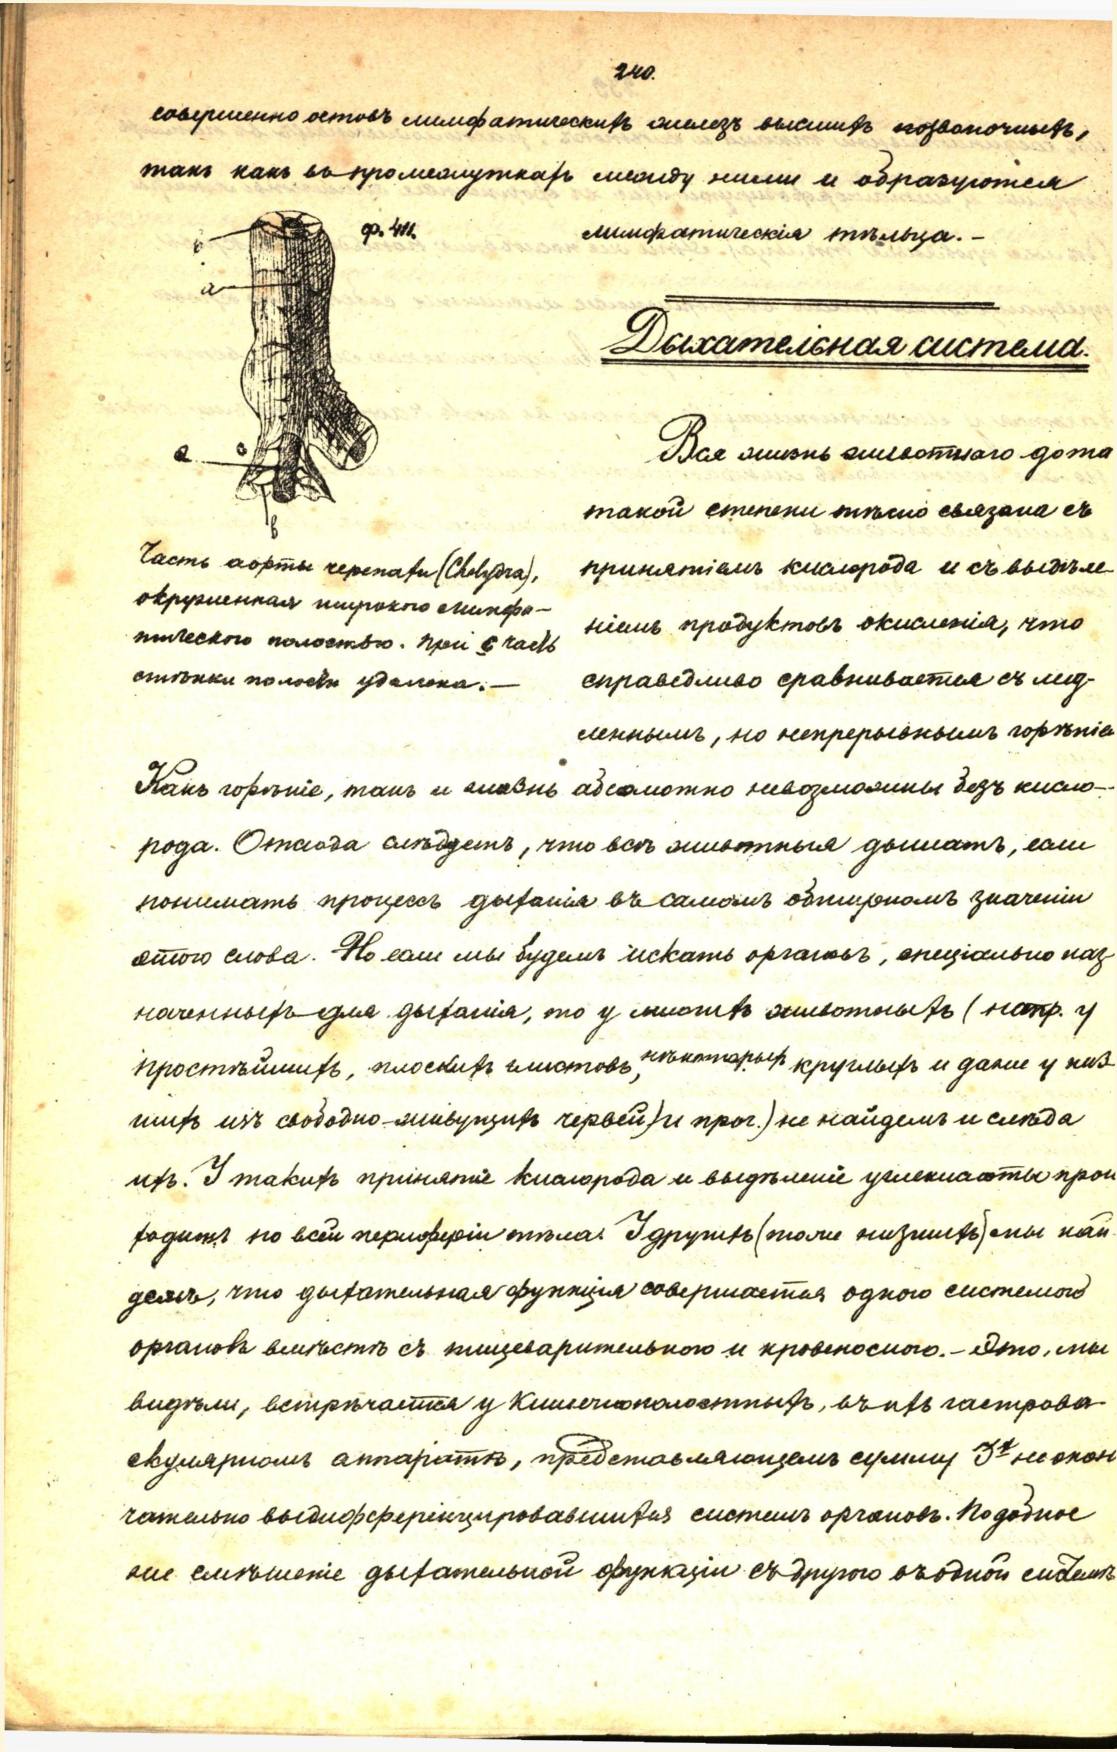 240.
совершенно остовъ лимфатическихъ железъ высшихъ позвоночныхъ,
такъ какъ въ промежуткахъ между ними и образуются
лимфатическія тѣльца. –
ф. 411.
b
a
a c
b
Часть аорты черепахи (Chelydra),
окруженная широкою лимфа–
тическою полостью. При c часть
стѣнки полости удалена. –
Дыхательная система.
Вся жизнь животнаго до та
такой степени тѣсно связана съ
принятіемъ кислорода и съ выдѣле
ніемъ продуктовъ окисленія, что
справедливо сравнивается съ мед–
леннымъ, но непрерывнымъ горѣніе
Какъ горѣніе, такъ и жизнь абсолютно невозможны безъ кисло–
рода. Отсюда слѣдуетъ, что всѣ животныя дышатъ, если
понимать процессъ дыханія въ самомъ обширномъ значеніи
этого слова. Но если мы будемъ искать органовъ, спеціально наз
наченныхъ для дыханія, то у многихъ животныхъ (напр. у
простѣйшихъ, плоскихъ глистовъ, нѣкоторыхъ круглыхъ и даже у низ
шихъ изъ свободно–живущихъ червей) и проч.) не найдемъ и слѣда
ихъ. У такихъ принятіе кислорода и выдѣленіе углекислоты прои
ходитъ по всей периферіи тѣла. У другихъ (тоже низшихъ) мы най
демъ, что дыхательная функція совершается одною системою
органовъ вмѣстѣ съ пищеварительною и кровеносною. – Это, мы
видѣли, встрѣчается у Кишечнополостныхъ, въ ихъ гастрова–
скулярномъ аппаратѣ, представляющемъ сумму 3х не окон
чательно выдифференцировавшихся системъ органовъ. Подобное
же смѣшеніе дыхательной функціи съ другою въ одной системѣ